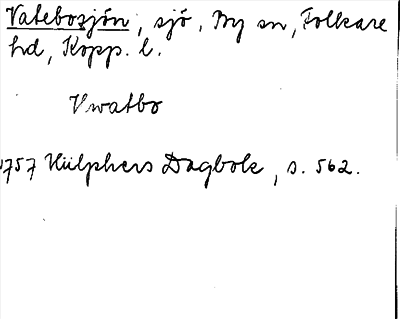 Vatebosjön, sjö. By sn, Folkare
hd, Kopp. l.
Vwatbo
1757 Hülphers Dagbok, s. 562.